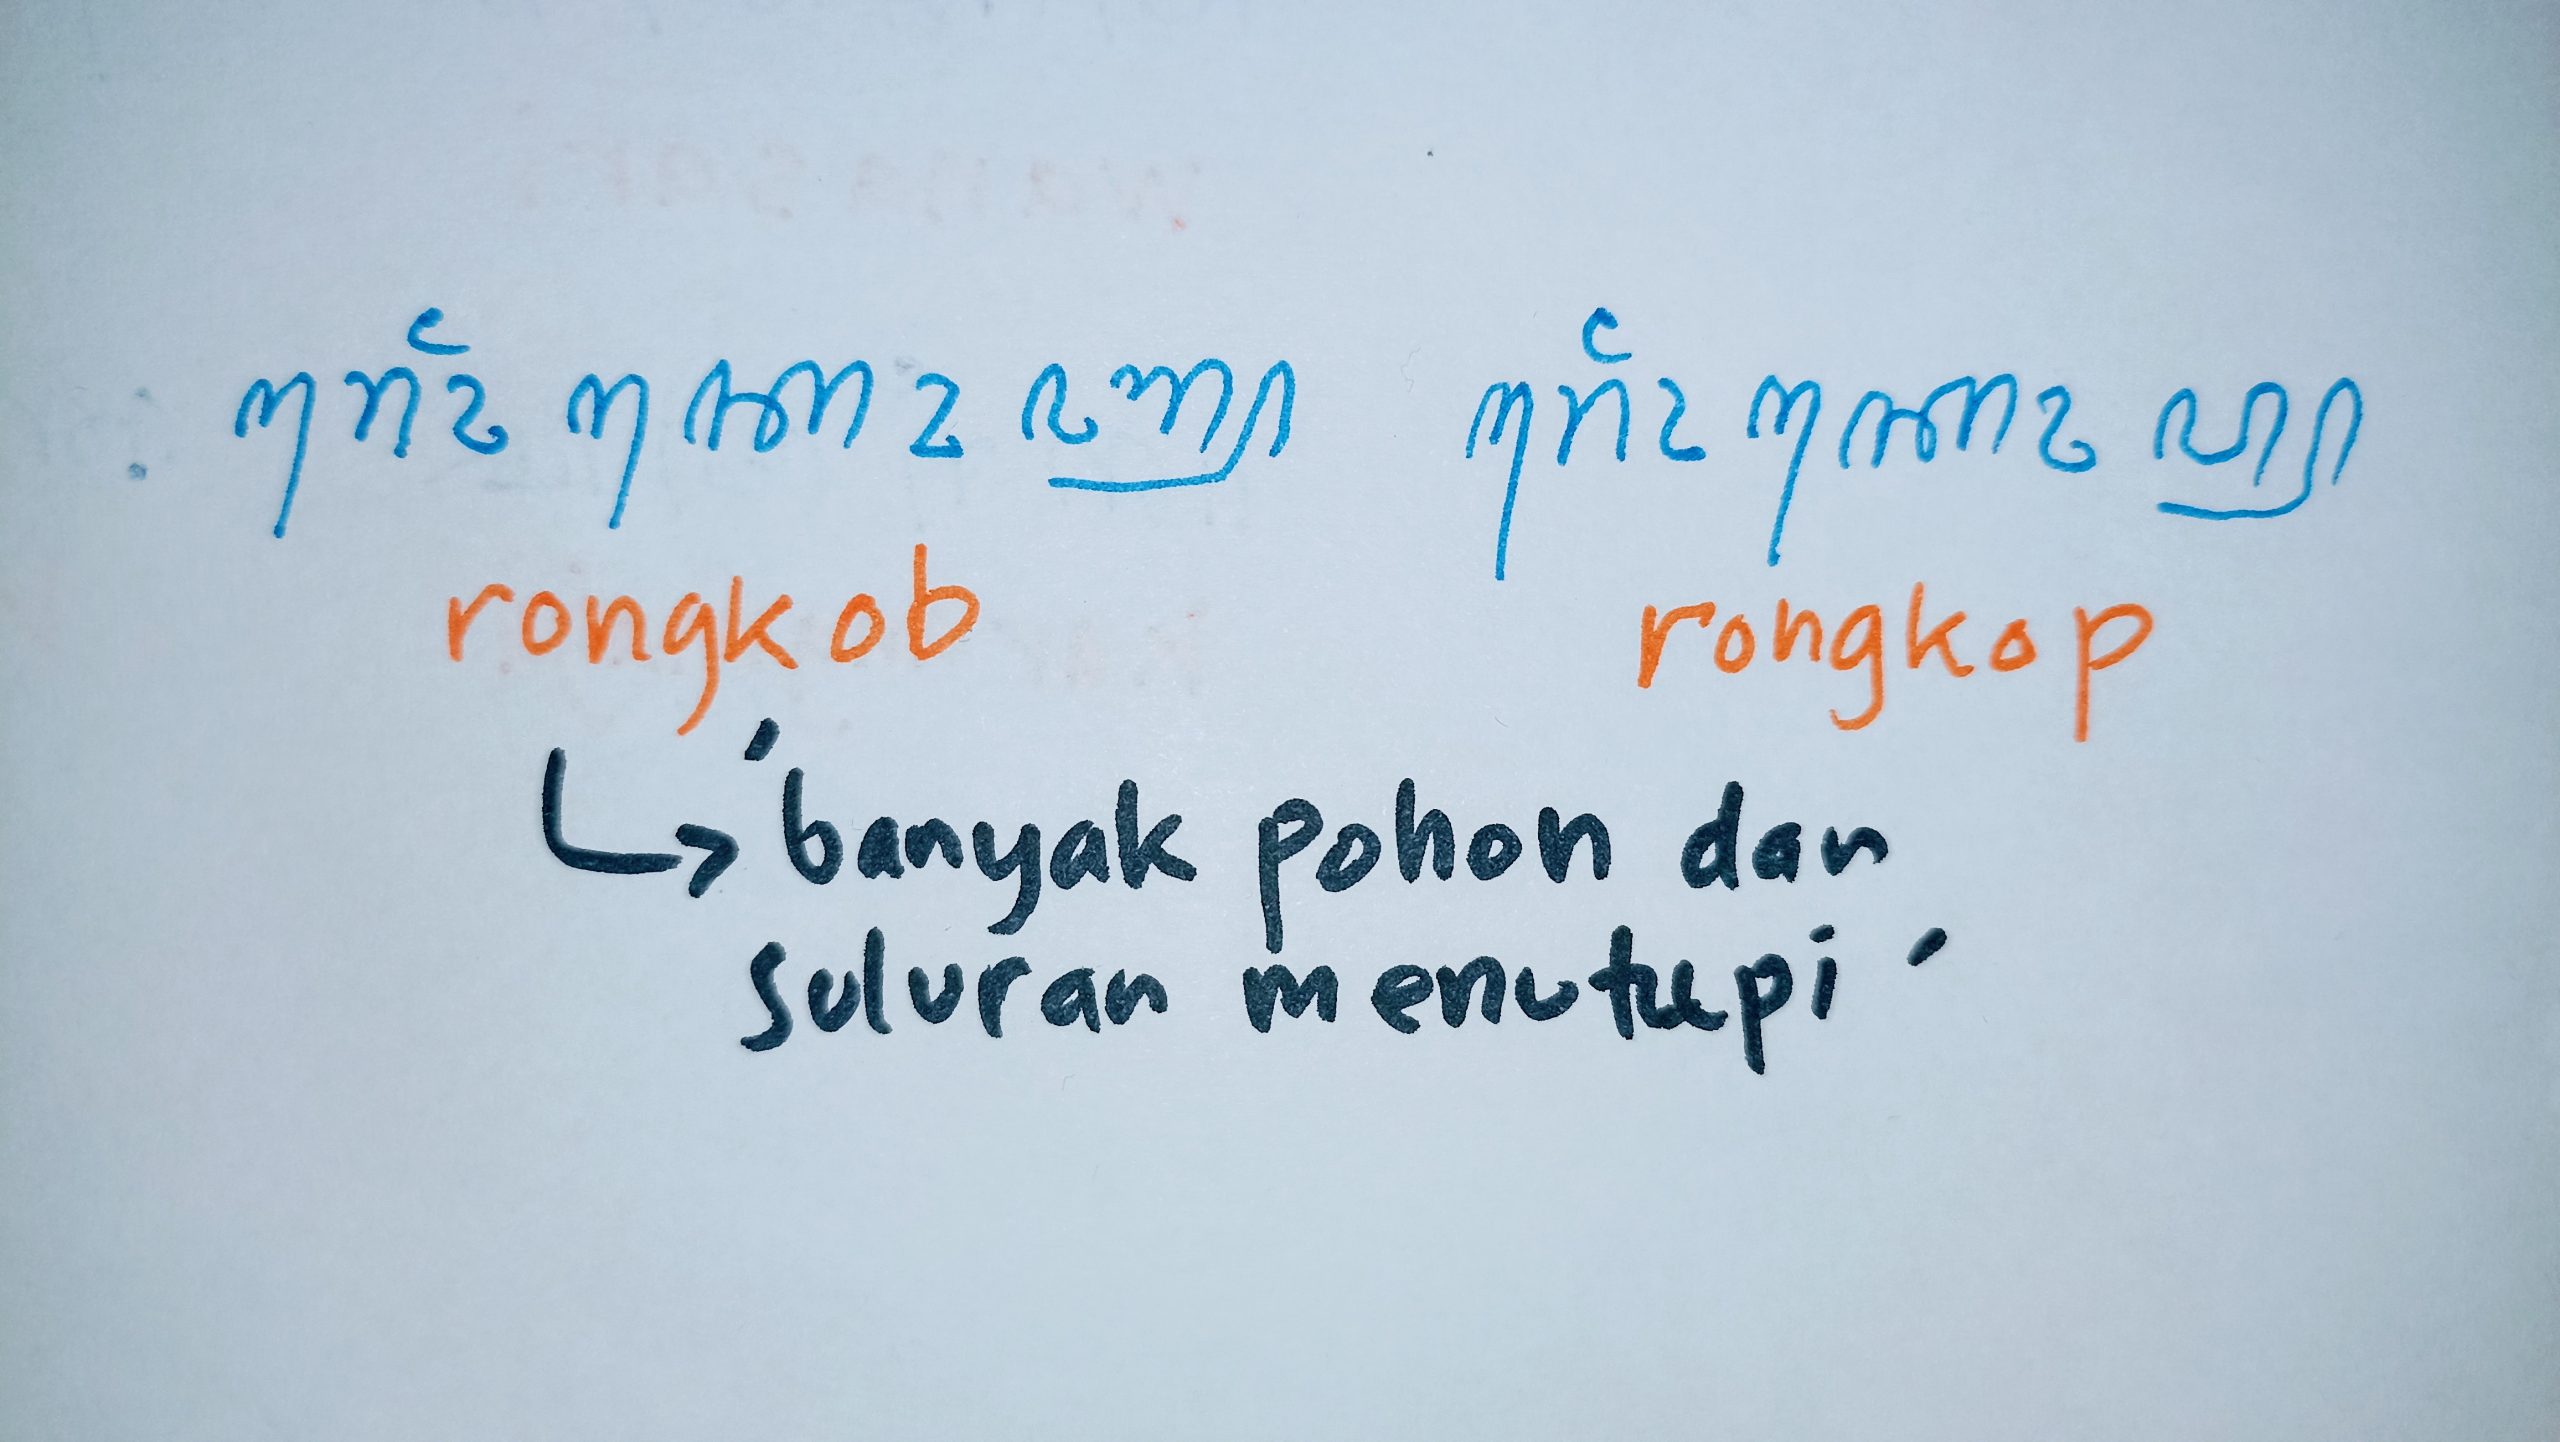 ꦫꦺꦴꦁꦏꦺꦴꦧ꧀ ꦫꦺꦴꦁꦏꦺꦴꦥ꧀
rongkob rongkop
↳ 'banyak pohon dan
suluran menutupi'